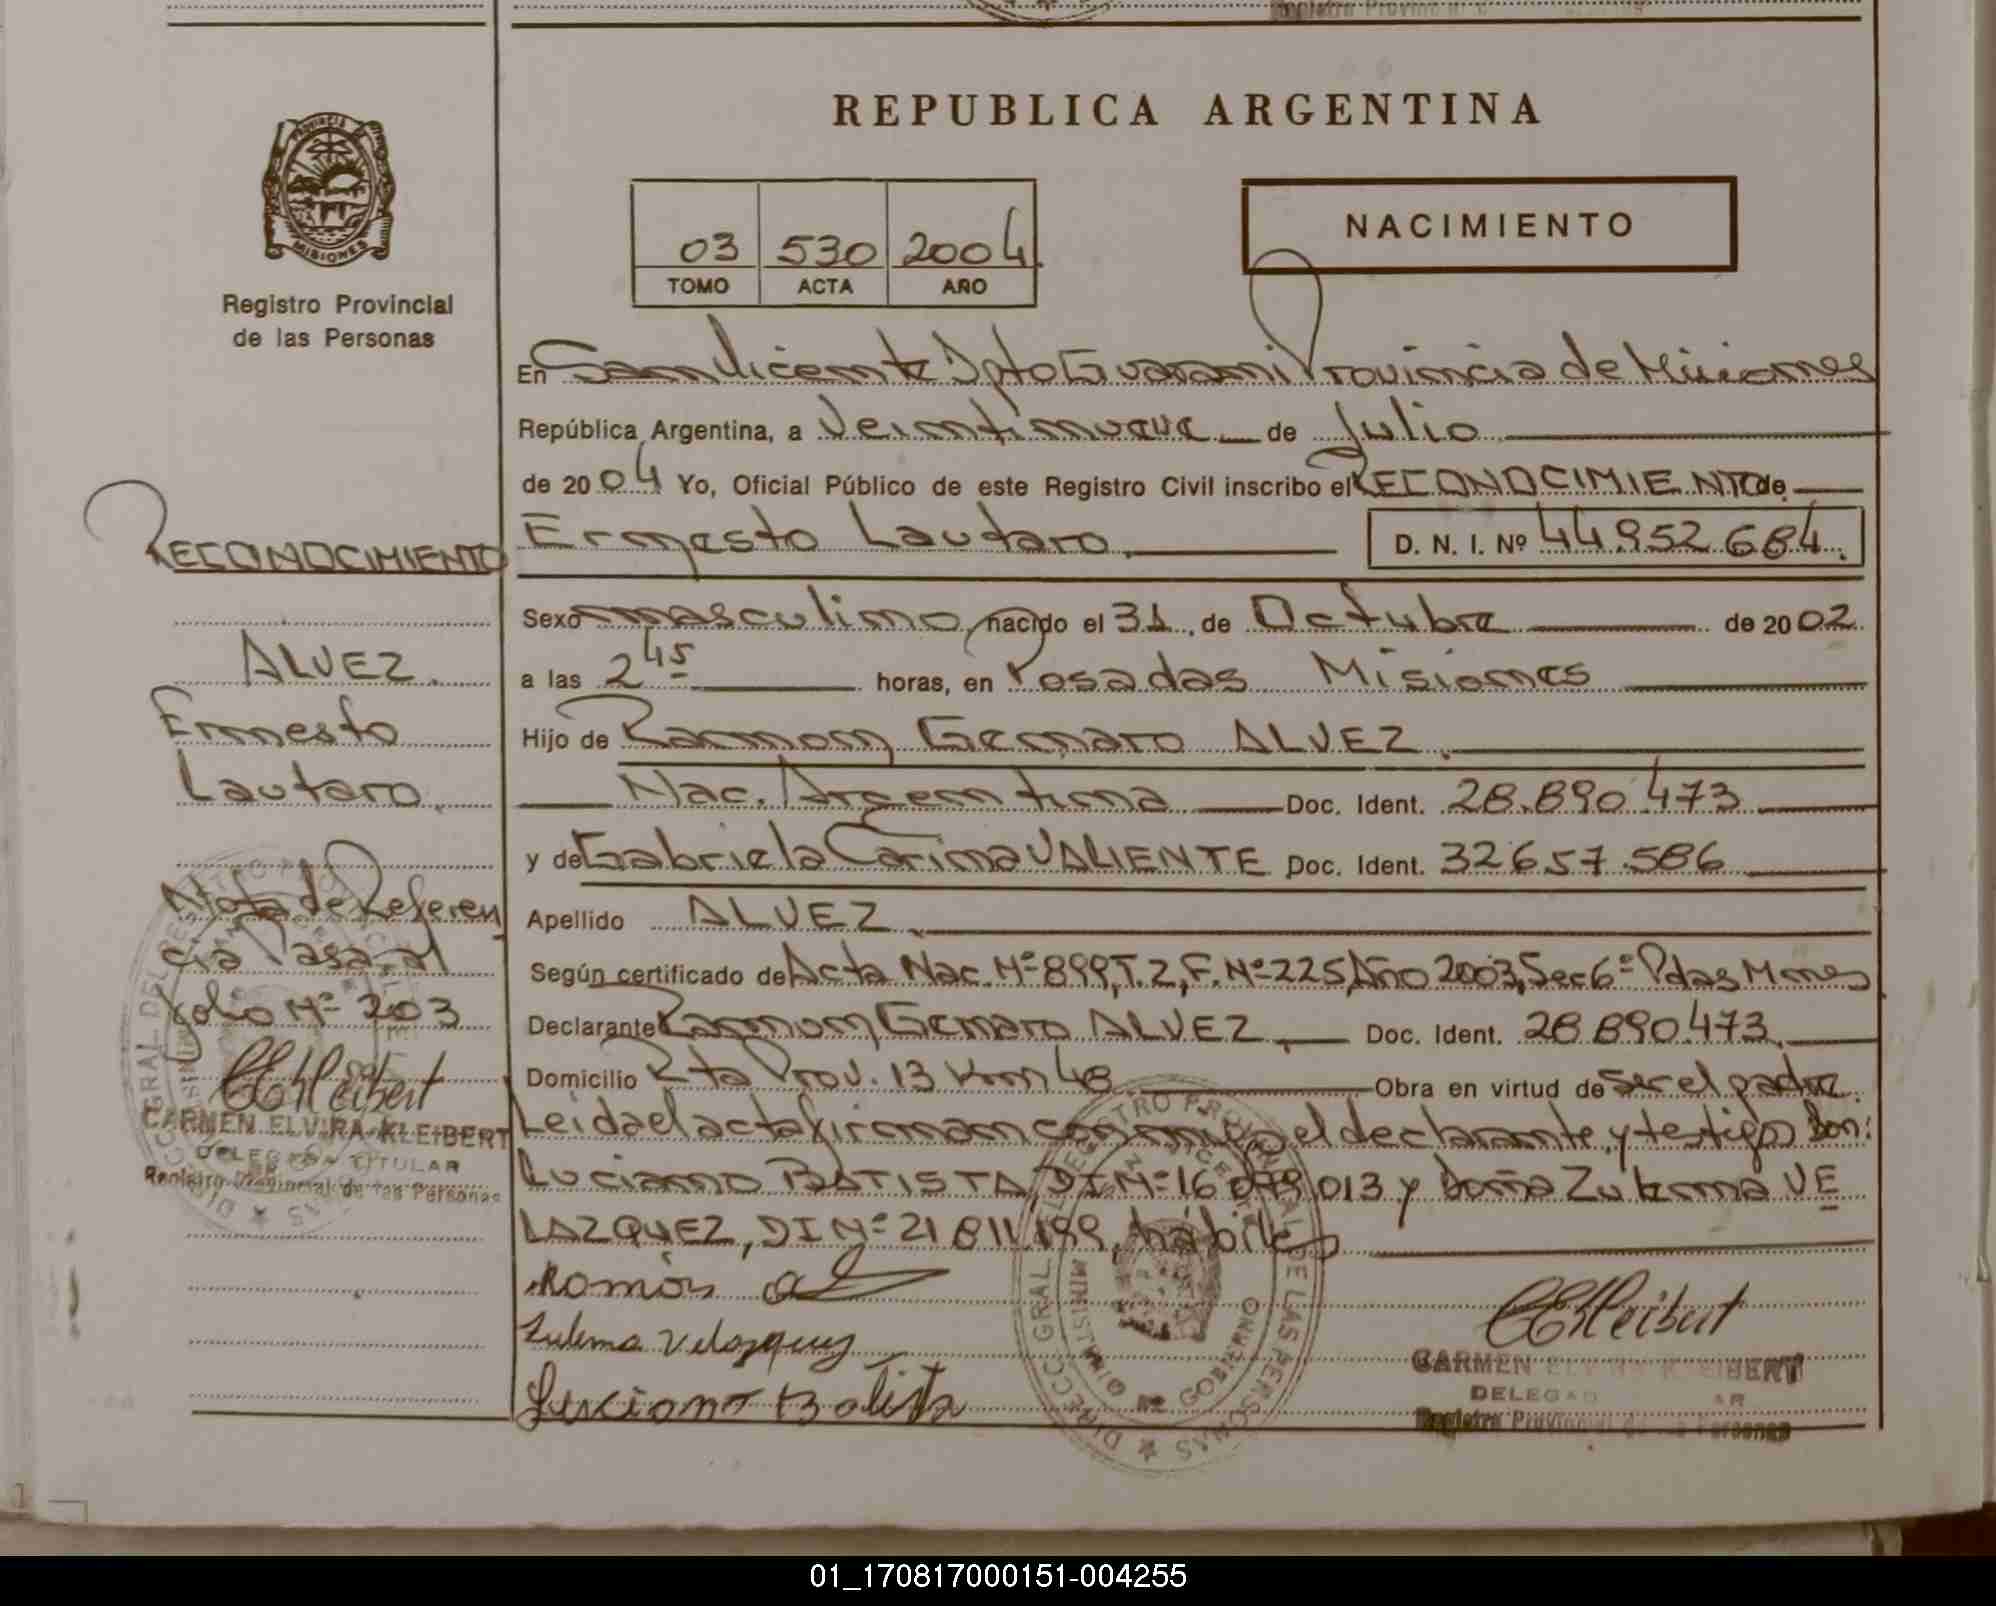 REPUBLICA ARGENTINA
PROVINCIA
MISIONES
Registro Provincial
de las Personas
03 530 2004
TOMO ACTA AÑO
NACIMIENTO
En San Vicente Dpto Guarani Provincia de Misiones
República Argentina, a Veintinueve de Julio
de 2004 Yo, Oficial Público de este Registro Civil inscribo el RECONOCIMIENTO de
Ernesto Lautaro. D. N. I. Nº 44.952.684.
Sexo masculino, nacido el 31 de Octubre de 2002
a las 2 45 horas, en Posadas Misiones
Hijo de Ramon Genaro ALVEZ.
Nac. Argentina Doc. Ident. 28.890.473
y de Gabriela Carina VALIENTE Doc. Ident. 32.657.586
Apellido ALVEZ.
Según certificado de Acta Nac. Nº 899, T. 2, F. Nº 225, Año 2003, Sec 6º Pdas Mnes
Declarante Ramon Genaro ALVEZ. Doc. Ident. 28.890.473.
Domicilio Rta Prov. 13 Km 48 Obra en virtud de ser el padre.
Leida el acta firman conmigo el declarante y testigos Don:
Luciano BATISTA, DI Nº 16 013 y Doña Zulema VE
LAZQUEZ, DI Nº 21.811.199, hábiles
Ramón
Zulema Velazquez
Luciano Batista
CEKleibert
CARMEN ELVIRA KLEIBERT
DELEGADA TITULAR
Registro Provincial de las Personas
RECONOCIMIENTO
ALVEZ.
Ernesto
Lautaro.
Nota de Referen
cia Pasa al
folio Nº 203
CEKleibert
CARMEN ELVIRA KLEIBERT
DELEGADA TITULAR
Registro Provincial de las Personas
DIRECC. GRAL. DEL REGISTRO PROVINCIAL DE LAS PERSONAS
MINISTERIO DE GOBIERNO
01_170817000151-004255